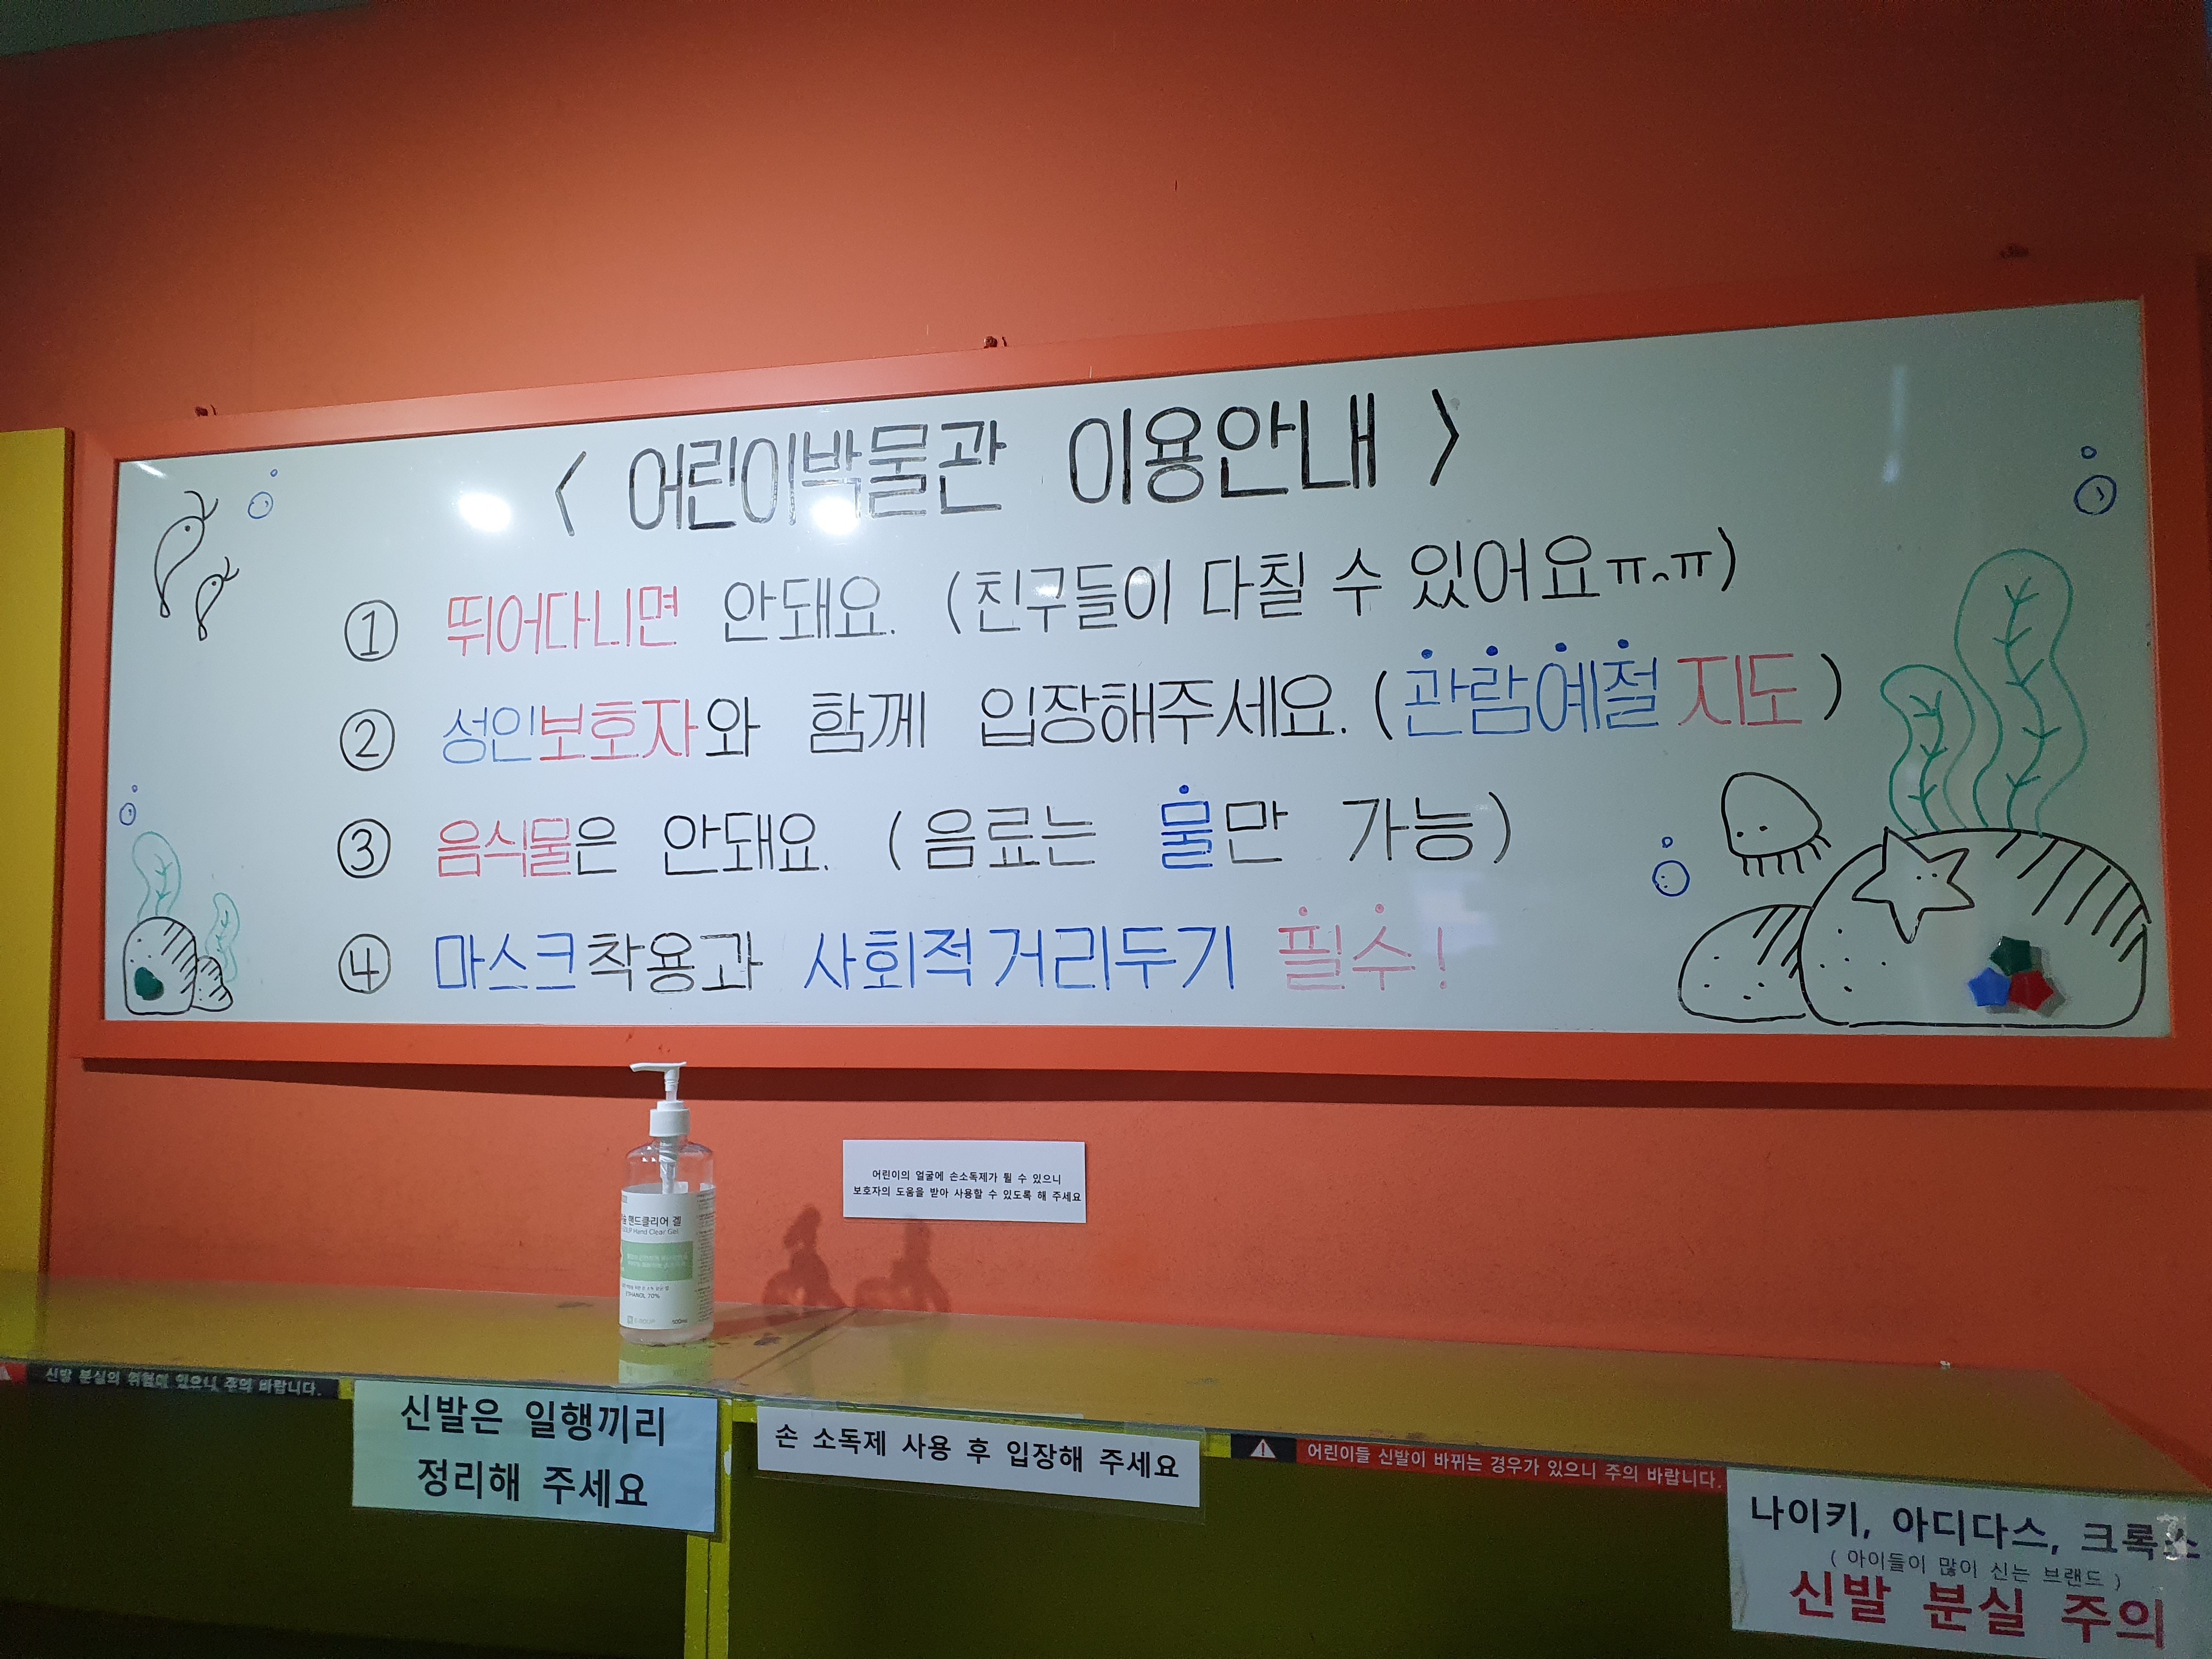 < 어린이박물관 이용안내 >
① 뛰어다니면 안돼요. (친구들이 다칠 수 있어요ㅠ^ㅠ)
② 성인보호자와 함께 입장해주세요. (관람예절 지도)
③ 음식물은 안돼요. (음료는 물만 가능)
④ 마스크착용과 사회적거리두기 필수!
어린이의 얼굴에 손소독제가 튈 수 있으니
보호자의 도움을 받아 사용할 수 있도록 해 주세요
핸드클리어 겔
Hand Clear Gel
ETHANOL 70%
500ml
신발 분실의 위험이 있으니 주의 바랍니다.
신발은 일행끼리
정리해 주세요
손 소독제 사용 후 입장해 주세요
어린이들 신발이 바뀌는 경우가 있으니 주의 바랍니다.
나이키, 아디다스, 크록스
( 아이들이 많이 신는 브랜드 )
신발 분실 주의